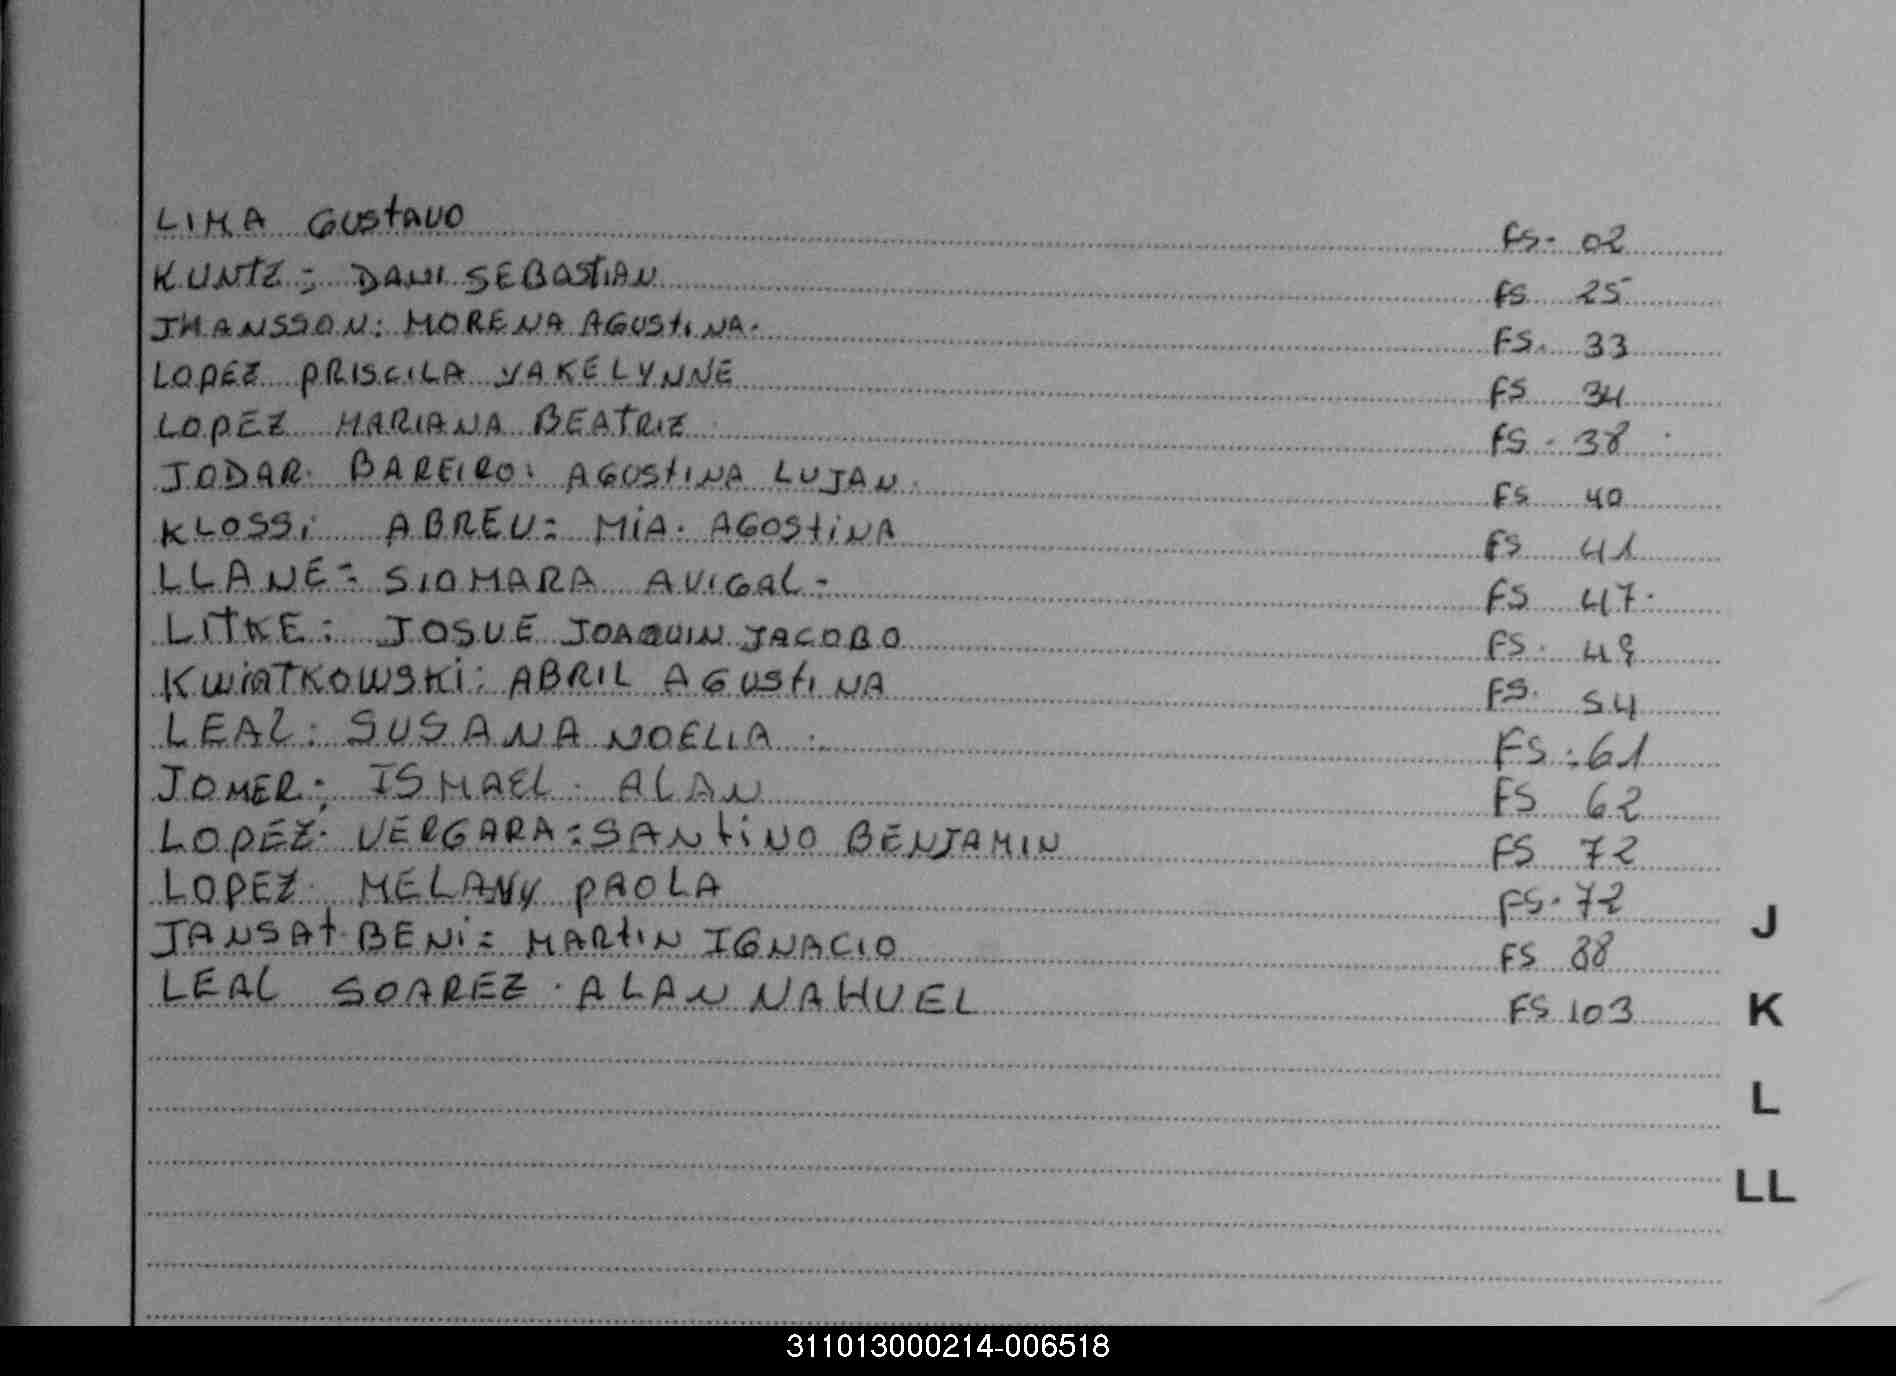 LIMA GUSTAVO FS- 02
KUNTZ; DANI SEBASTIAN FS 25
JHANSSON: MORENA AGUSTINA. FS. 33
LOPEZ PRISCILA YAKELYNNE FS 34
LOPEZ MARIANA BEATRIZ FS. 38
JODAR BAREIRO: AGUSTINA LUJAN. FS 40
KLOSSi ABREU: MiA. AGOSTINA FS 41
LLANE= SIOMARA AVIGAL- FS 47.
LITKE: JOSUE JOAQUIN JACOBO FS. 49
KWIATKOWSKI: ABRIL AGUSTINA FS. 54
LEAL: SUSANA NOELIA. FS:61
JOMER; ISMAEL. ALAN FS 62
LOPEZ. VERGARA:SANTINO BENJAMIN FS 72
LOPEZ. MELANY PAOLA FS.72
JANSAT BENI: MARTIN IGNACIO FS 88
LEAL SOAREZ. ALAN NAHUEL FS 103
J
K
L
LL
311013000214-006518